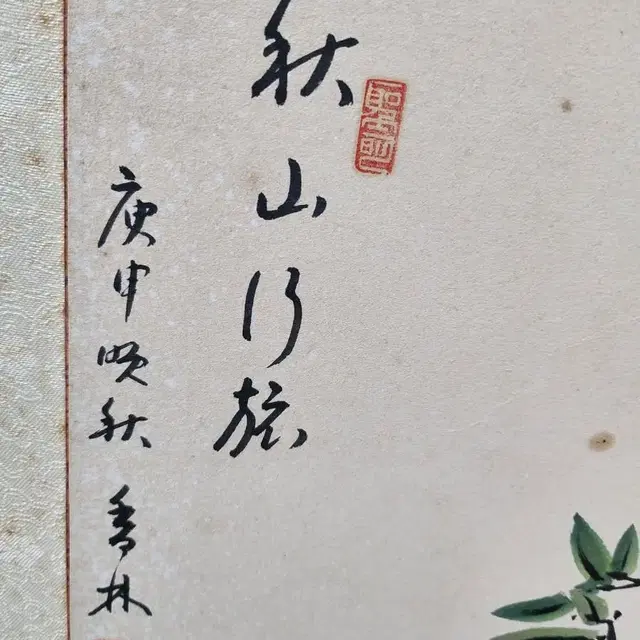 秋山行旅
庚申晚秋 香林